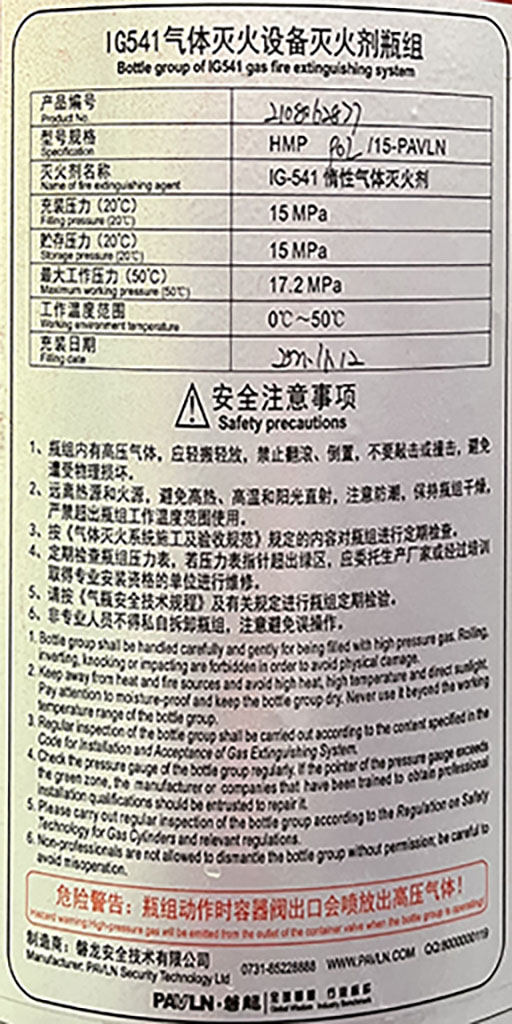 IG541气体灭火设备灭火剂瓶组
Bottle group of IG541 gas fire extinguishing system
产品编号
Product No.
2108062877
型号规格
Specification
HMP /15-PAVLN
灭火剂名称
Name of fire extinguishing agent
IG-541 惰性气体灭火剂
充装压力（20℃）
Filling pressure (20℃)
15 MPa
贮存压力（20℃）
Storage pressure (20℃)
15 MPa
最大工作压力（50℃）
Maximum working pressure (50℃)
17.2 MPa
工作温度范围
Working environment temperature
0℃～50℃
充装日期
Filling date
安全注意事项
Safety precautions
1、瓶组内有高压气体，应轻搬轻放，禁止翻滚、倒置，不要敲击或撞击，避免
遭受物理损坏。
2、远离热源和火源，避免高热、高温和阳光直射，注意防潮，保持瓶组干燥，
严禁超出瓶组工作温度范围使用。
3、按《气体灭火系统施工及验收规范》规定的内容对瓶组进行定期检查。
4、定期检查瓶组压力表，若压力表指针超出绿区，应委托生产厂家或经过培训
取得专业安装资格的单位进行维修。
5、请按《气瓶安全技术规程》及有关规定进行瓶组定期检验。
6、非专业人员不得私自拆卸瓶组，注意避免误操作。
1. Bottle group shall be handled carefully and gently for being filled with high pressure gas. Rolling,
inverting, knocking or impacting are forbidden in order to avoid physical damage.
2. Keep away from heat and fire sources and avoid high heat, high temperature and direct sunlight.
Pay attention to moisture-proof and keep the bottle group dry. Never use it beyond the working
temperature range of the bottle group.
3. Regular inspection of the bottle group shall be carried out according to the content specified in the
Code for Installation and Acceptance of Gas Extinguishing System.
4. Check the pressure gauge of the bottle group regularly. If the pointer of the pressure gauge exceeds
the green zone, the manufacturer or companies that have been trained to obtain professional
installation qualifications should be entrusted to repair it.
5. Please carry out regular inspection of the bottle group according to the Regulation on Safety
Technology for Gas Cylinders and relevant regulations.
6. Non-professionals are not allowed to dismantle the bottle group without permission; be careful to
avoid misoperation.
危险警告：瓶组动作时容器阀出口会喷放出高压气体！
Hazard warning:High-pressure gas will be emitted from the outlet of the container valve when the bottle group is operating!
制造商：磐龙安全技术有限公司
Manufacturer: PAVLN Security Technology Ltd
0731-85228888 WWW.PAVLN.COM QQ:8000000119
PAVLN·磐龍
Global Wisdom Industry Benchmark